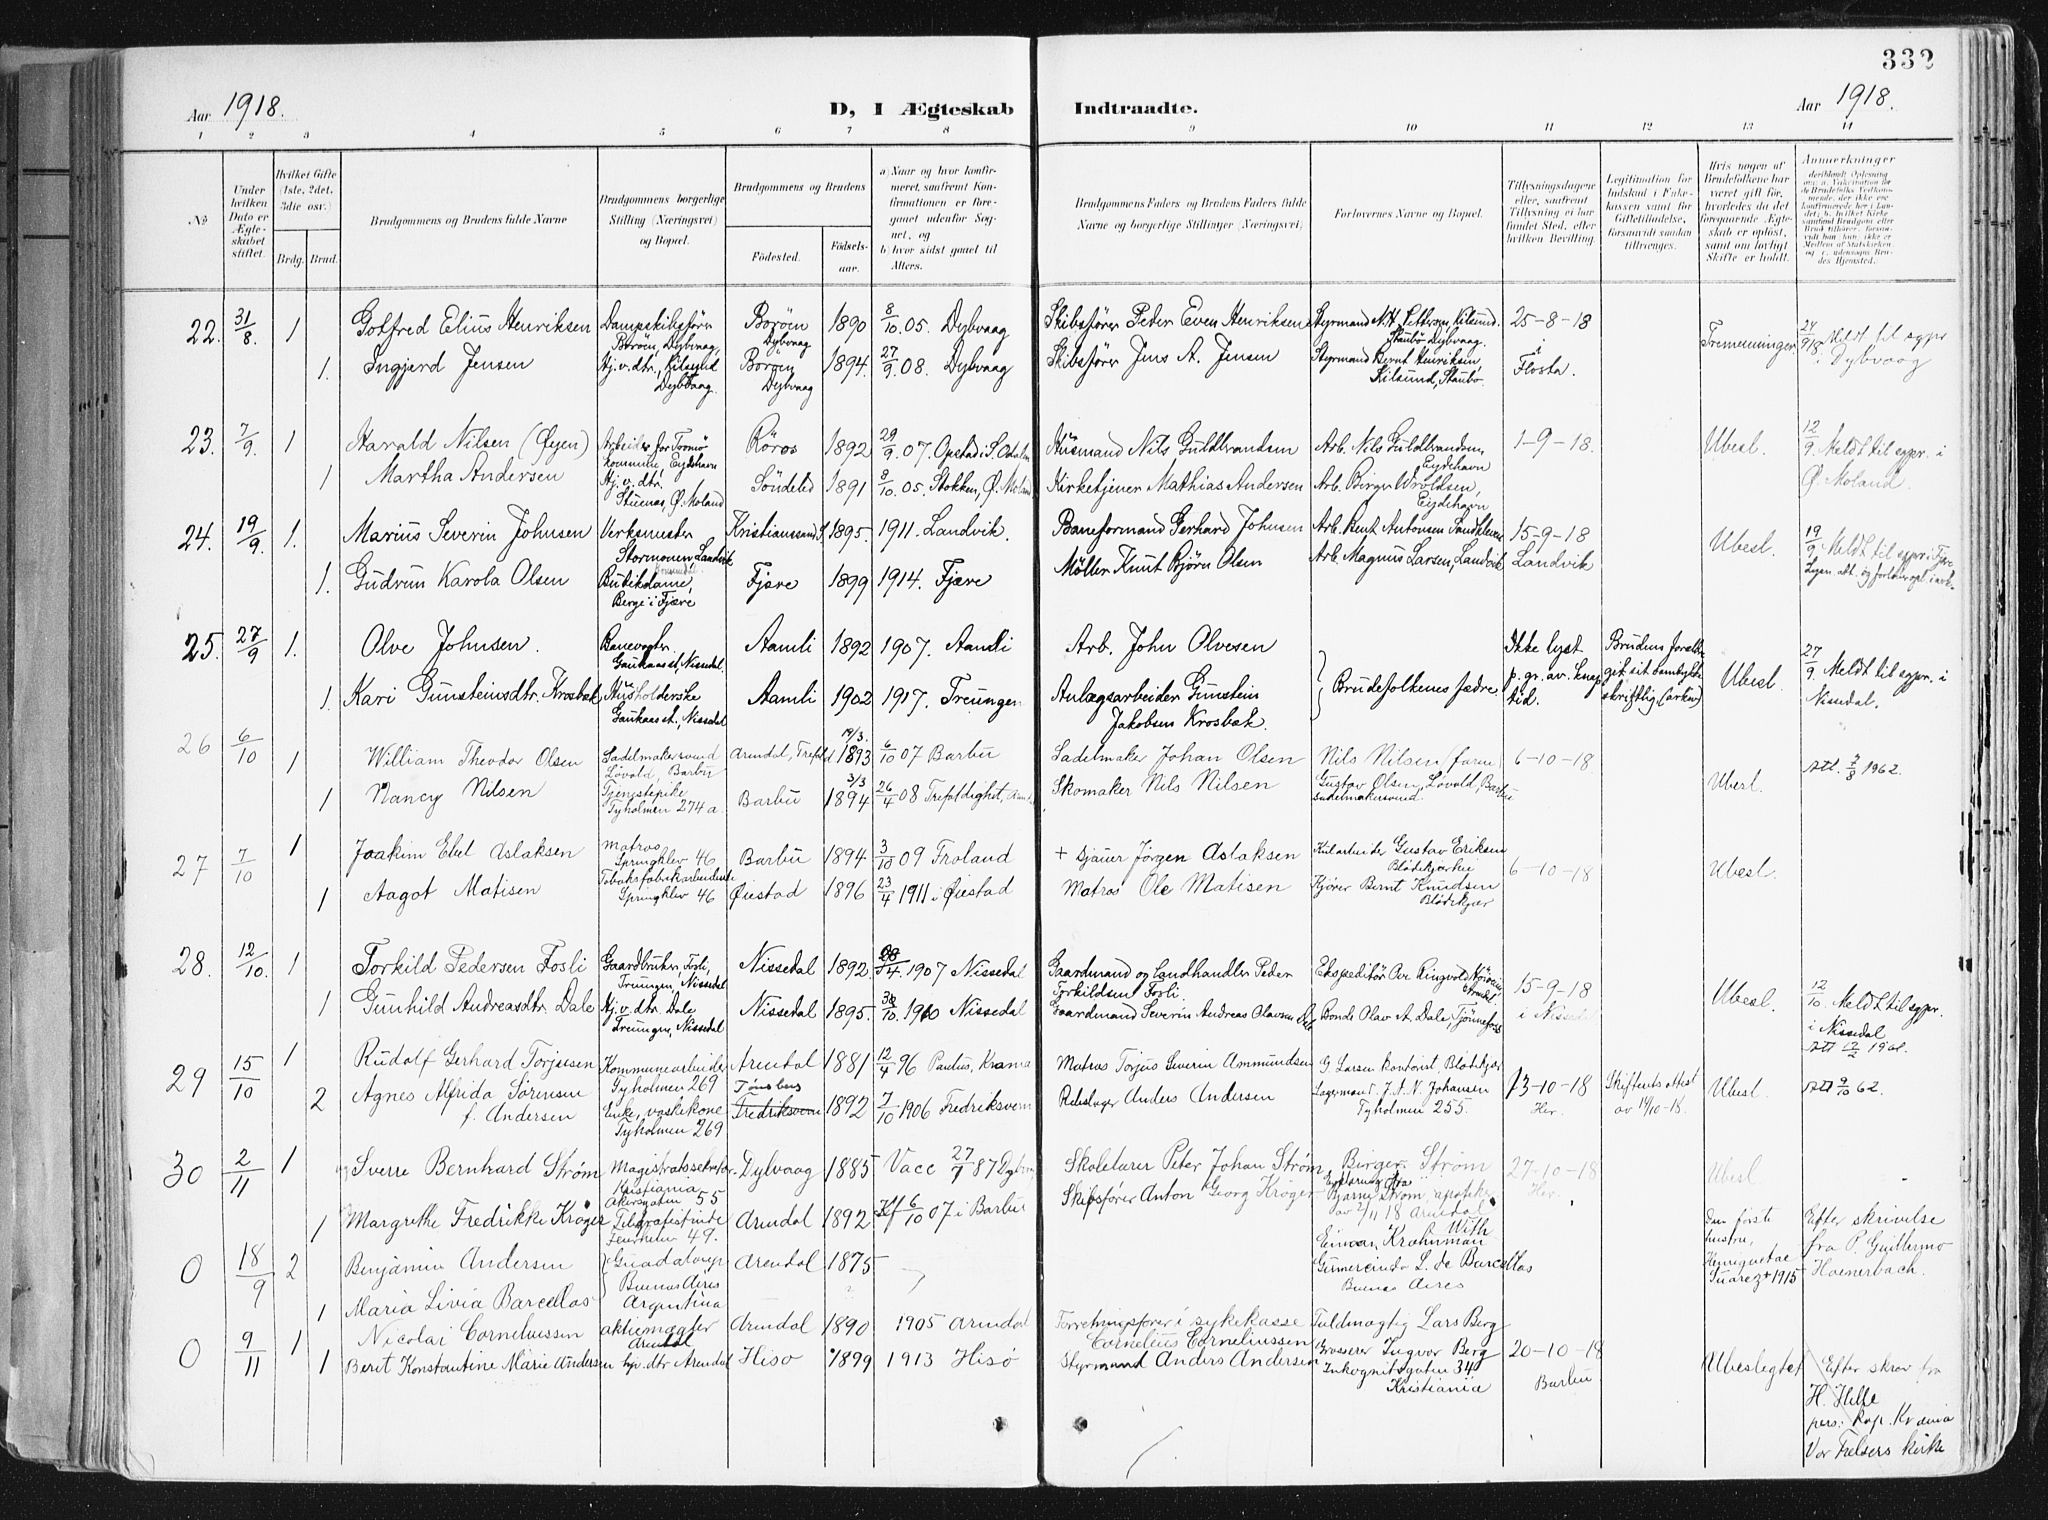 332
Aar 1918.
D, I Ægteskab Indtraadte.
Aar 1918.
1 2 3 4 5 6 7 8 9 10 11 12 13 14
No
Under hvilken Dato er Ægteskabet stiftet.
Hvilket Gifte (1ste, 2det, 3die osv.)
Brdg. Brud.
Brudgommens og Brudens fulde Navne
Brudgommens borgerlige Stilling (Næringsvei) og Bopæl.
Brudgommens og Brudens
Födested. Födselsaar.
a) Naar og hvor konfirmeret, saafremt Konfirmationen er foregaaet udenfor Sognet, og
b) hvor sidst gaaet til Alters.
Brudgommens Faders og Brudens Faders fulde Navne og borgerlige Stillinger (Næringsvei)
Forlovernes Navne og Bopæl.
Tillysningsdagene eller, saafremt Tillysning ei har fundet Sted, efter hvilken Bevilling.
Legitimation for Indskud i Enkekassen samt for Giftetilladelse, forsaavidt saadan tiltrænges.
Hvis nogen af Brudefolkene har været gift før, hvorledes da det foregaaende Ægteskab er oplöst, samt om lovligt Skifte er holdt.
Anmerkninger
22. 31/8. 1 Gotfred Elius Henriksen Dampskibsförer Boröen, Dybvaag Boröen Dybvaag 1890 8/10 05. Dybvaag Skibsförer Peder Even Henriksen Styrmand N.H. Pettersen, Kilsund. Staubö Dybvaag. 25-8-18 i Flosta. Tremenninger 24/9 18. Meldt til sgpr. i Dybvaag
1. Ingjerd Jensen Hj. v. dtr., Kilsund Dybvaag. Boröen Dybvaag 1894. 27/9. 08. Dybvaag Skibsförer Jens A. Jensen Styrmand Bernt Henriksen, Kilsund, Staubö.
23. 7/9. 1 Harald Nilsen (Øyen) Arbeider for Tromö kommune, Eydehavn Röros 1892 29/9. 07. Opstad i S. Odalen Husmand Nils Guldbrandsen Arb. Nils Guldbrandsen, Eydehavn 1-9-18. Ubesl. 12/9 Meldt til sgpr. i Ø. Moland.
1 Martha Andersen Hj. v. dtr. Stuenes, Ø. Moland Söndeled 1891 8/10. 05. Stokken, Ø. Moland Kirketjener Mathias Andersen Arb. Birger Wroldsen, Eydehavn
24. 19/9. 1. Marius Severin Johnsen Verksmester Stormonen Landvik Kristianssand S. 1895. 1911. Landvik. Baneformand Gerhard Johnsen Arb. Bent Antonsen Sandkleven 15-9-18 Landvik Ubesl. 19/9. Meldt til sgpr. i Fjære
1. Gudrun Karola Olsen Butikdame, Berge i Fjære Fjære 1899 1914. Fjære Möller Knut Björn Olsen Arb. Magnus Larsen, Landvik
25. 27/9 1. Olve Johnsen. Banevogter. Gaukaas st. Nissedal. Aamli 1892 1907. Aamli Arb. John Olvesen Brudefolkenes fædre. Ikke lyst p. gr. av. knap tid. Brudens forældre git sit samtykke skriftlig (arken) Ubesl. 27/9 Meldt til sgpr. i Nissedal.
1. Kari Gunsteinsdtr. Krosbæk Husholderske Gaukaas st., Nissedal Aamli 1902 1917. Treungen Anlægsarbeider Gunstein Jakobsen Krosbæk.
26 6/10 1 William Theodor Olsen Sadelmakersvend Løvold, Barbu Arendal, Trefold 19/3. 1893 6/10 07 Barbu Sadelmaker Johan Olsen Nils Nilsen (faren) 6-10-18 Ubesl. Att. 7/8 1962.
1 Nancy Nilsen Tjenestepike Tyholmen 274a. Barbu 3/3 1894 26/4 08 Trefoldighet, Skomaker Nils Nilsen Gustav Olsen, Løvold, Barbu sadelmakersvend.
27 7/10 1 Joakim Ebel Aslaksen Matros Springklev 46 Barbu 1894 3/10 09 Froland + Sjauer Jörgen Aslaksen Kularbeider Gustav Eriksen Blödekjær 6-10-18 Ubesl.
1 Aagot Matisen Tobaksfabrikarbeiderske Springklev 46 Øiestad 1896 23/4 1911 i Øiestad Matros Ole Matisen Kjörer Bernt Knudsen Blödekjær
28. 12/10. 1 Torkild Pedersen Fosli Gaardbruker, Fosli, Treungen, Nissedal Nissedal 1892. 1907 Nissedal Gaardmand og Landhandler Peder Torkildsen Fosli. Ekspeditör Ove Ringvold 15-9-18 i Nissedal Ubesl. 12/10. Meldt til sgpr. i Nissedal
1 Gunhild Andreasdtr. Dale Hj. v. dtr. Dale Treungen, Nissedal Nissedal 1895. 30/10. 1910 Nissedal Gaardmand Severin Andreas Olavsen Dale Bonde Olav A. Dale, Tjönnefoss
29 15/10 1 Rudolf Gerhard Torjusen Kommunearbeider Tyholmen 269 Arendal 1881 12/4 96 Paulus, Krania Matros Torjus Severin Ammundsen G. Larsen kontorist, Blödekjær 13-10-18 Her. Skifterets attest av 14/10-18. Ubesl. Att 9/10 62.
2 Agnes Alfrida Sörensen f. Andersen Enke, vaskekone Tyholmen 269 Tønsberg Fredriksvern 1892 7/10 1906 Fredriksvern Rebslager Anders Andersen Lagermand J.A.N. Johansen Tyholmen 255.
30 2/11 1 Sverre Bernhard Strøm Magistratssekretær. Kristiania Akersgaten 55 Dybvaag 1885 Vacc 27/7 87 Dybvaag Skolelærer Peter Johan Strøm Birger Strøm 27-10-18 Her. Ubesl
1 Margrethe Fredrikke Krøger Telegrafistinde 49. Arendal 1892 Kf 6/10 07 i Barbu Skibsfører Anton Georg Krøger Bjarne Strøm, apotheker av 2/11 18 Arendal
0 18/9 2 Benjamin Andersen Guadaloupe Buenos Aires Argentina Arendal 1875 Einar Krohnman Gumercindo L. de Barcellos Buenos Aires Den første hustru, Heniquetae Suarez + 1915 Efter skrivelse fra P. Guillermo Hoenerbach.
1 Maria Livia Barcellos
0 9/11 1 Nicolai Corneliussen aktiemægler Arendal Arendal 1890 1905 Arendal Forretningsfører i sykekasse Cornelius Corneliussen Fuldmægtig Lars Berg 20-10-18 Barbu Ubeslegtet Efter skrev fra H. Hille pers. kap. Kr.ania Vor Frelsers kirke
1 Berit Konstantine Marie Andersen hjv. dtr Arendal Hisø 1899 1913 Hisø Styrmand Anders Andersen Grosserer Ingvar Berg Inkognitogaten 34 Kristiania